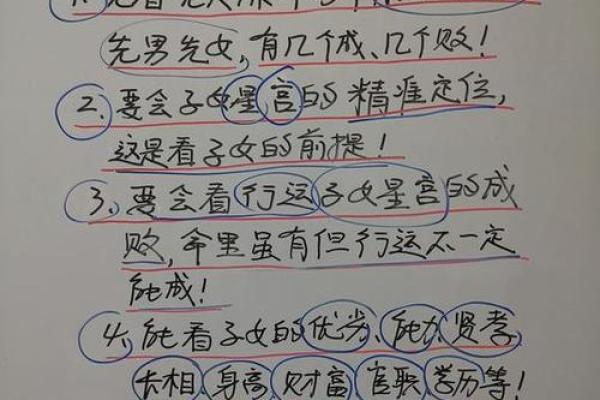 先男先女，有几个成、几个败！
2、要会子女星、宫的精准定位，
这是看子女的前提！
3、要会看行运子女星宫的成
败，命里虽有但行运不一定
能成！
4、能看子女的优劣、能力、贤孝、
长相、身高、财富、官职、学历等！